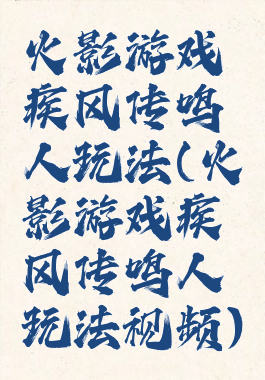 火影游戏
疾风传鸣
人玩法(火
影游戏疾
风传鸣人
玩法视频)